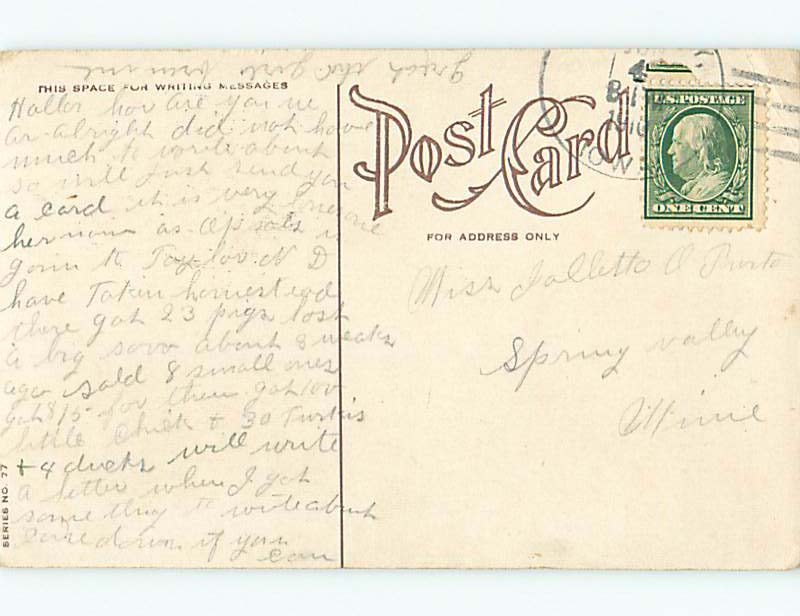 THIS SPACE FOR WRITING MESSAGES
Hallo how are you we
ar alright did not have
much to write about
so will just send you
a card it is very lonesome
her now as
goin to Taylor N D
have Taken homestead
there got 23 pigs lost
a big sow about 3 weaks
ago sold 8 small ones
got $15 for them got 100
little Chick + 30 Turkis
+ 4 ducks will write
a letter when I get
some thing to write about
come down if you
can
SERIES NO. 77
Post Card
FOR ADDRESS ONLY
4
1910
U.S. POSTAGE
ONE CENT
Miss
Spring valley
Minn